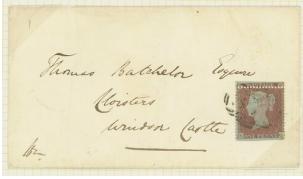 Thomas Batchelor Esquire
Cloisters
Windsor Castle